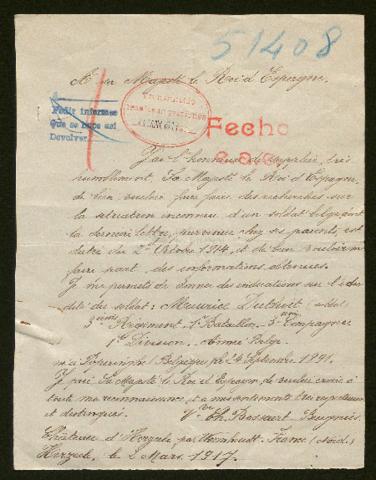 51408
A sa Majesté le Roi d'Espagne,
Pedir informes
que se hace así
Devolver.
Tramitado
Fecho
J'ai l'honneur de supplier, très
humblement, Sa Majesté le Roi d'Espagne,
de bien vouloir faire faire des recherches sur
la situation inconnue d'un soldat belge dont
la dernière lettre, parvenue chez ses parents, est
datée du 2 Octobre 1914, et de bien vouloir m
faire part des informations obtenues.
Je me permets de donner des indications sur l'iden
tité du soldat: Maurice (soldat)
Régiment, 1r Bataillon, 3e Compagnie
1re Division. Armée Belge.
né à Poperinghe (Belgique) le Septembre 1891.
Je prie Sa Majesté le Roi d'Espagne de vouloir croire à
toute ma reconnaissance, à mes sentiments
et distingués. Vve Ch. Bossaert
Château d'Herzeele, par Wormhoudt. France (Nord.)
Herzeele, le 2 Mars 1917.